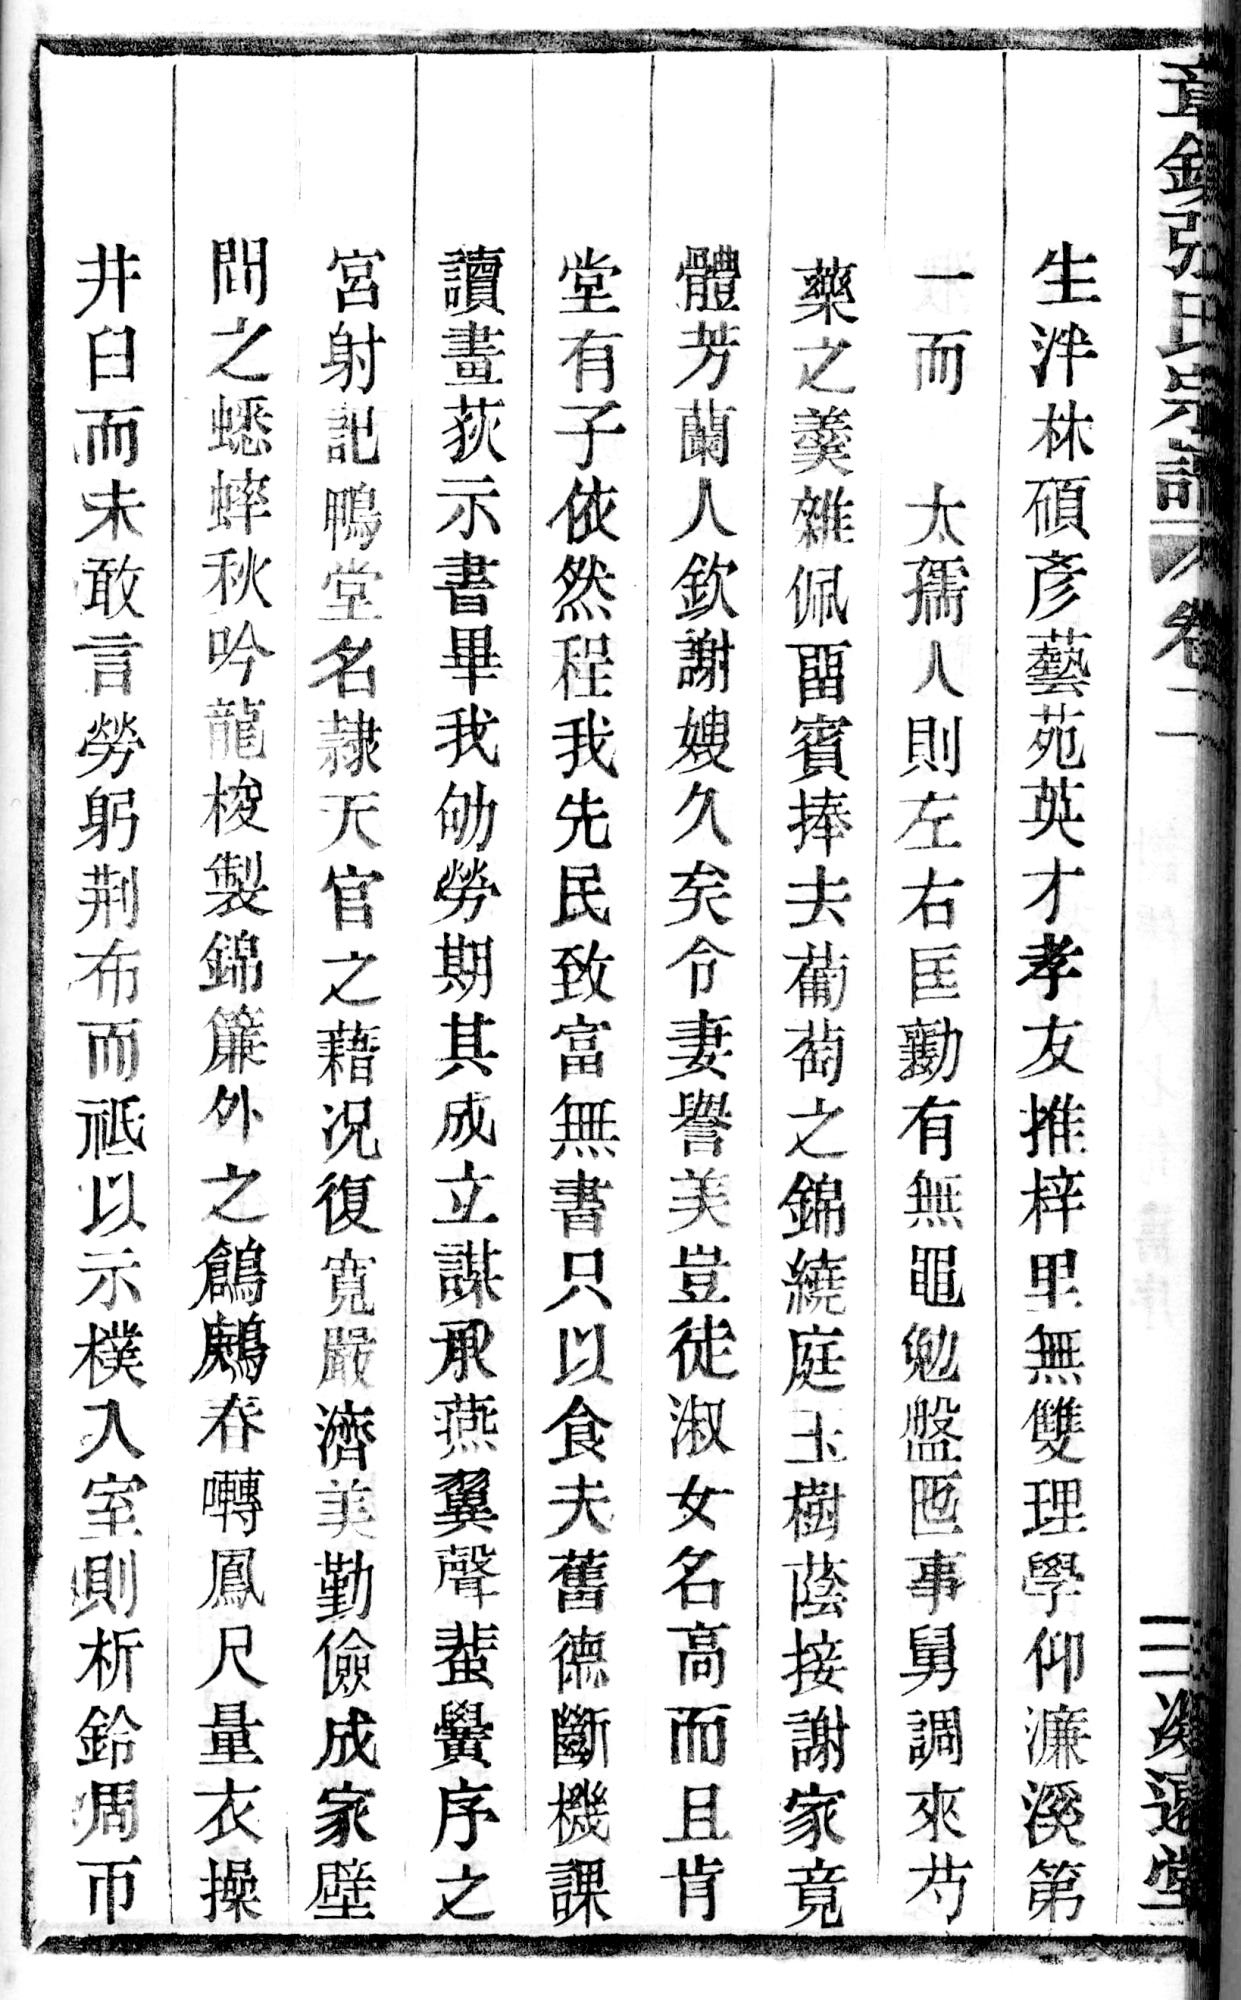 章鎮張氏宗譜 卷二 三 遠堂
生泮林碩彥藝苑英才孝友推梓里無雙理學仰濂溪第
一而 太孺人則左右匡勷有無黽勉盤匜事舅調來芍
藥之羹雜佩畱賓捧去葡萄之錦繞庭玉樹蔭接謝家竟
體芳蘭人欽謝嫂久矣令妻譽美豈徒淑女名高而且肯
堂有子依然程我先民致富無書只以食夫舊德斷機課
讀畫荻示書畢我劬勞期其成立謀承燕翼聲蜚黌序之
宮射記鴨堂名隷天官之藉况復寬嚴濟美勤儉成家壁
間之蟋蟀秋吟龍梭製錦簾外之鶬鶊春囀鳳尺量衣操
井臼而未敢言勞躬荆布而祗以示樸入室則析鈴周帀